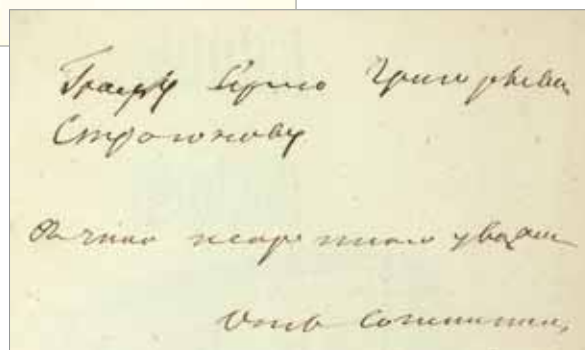 Графу Сергію Григорьевичу
Строгонову
въ знакъ искренняго уваженія
отъ сочинителя